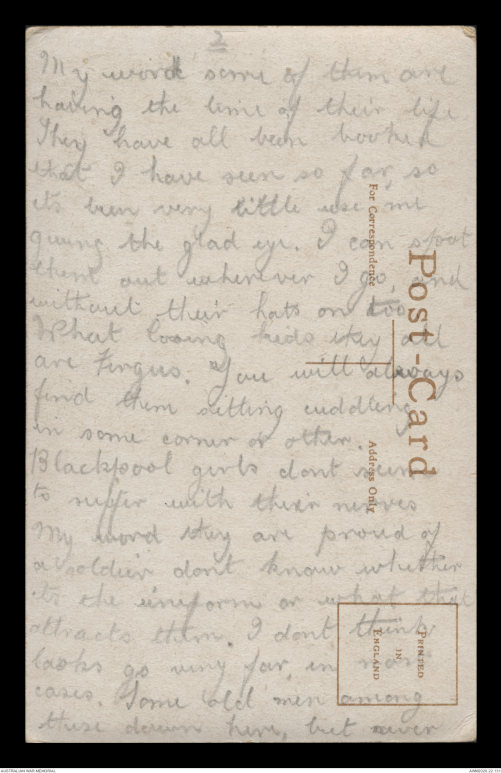 2
My word some of them are
having the time of their life
They have all been booked
that I have seen so far, so
its been very little use me
giving the glad eye. I can spot
them out wherever I go, and
without their hats on too.
What loving kids they all
are Fergus. You will always
find them sitting cuddling
in some corner or other.
Blackpool girls dont seem
to suffer with their nerves
My word they are proud of
a soldier dont know whether
its the uniform or what that
attracts them. I dont think
looks go very far, in
cases. Some old men among
these down here, but never
Post-Card
For Correspondence
Address Only
PRINTED
IN
ENGLAND
AUSTRALIAN WAR MEMORIAL